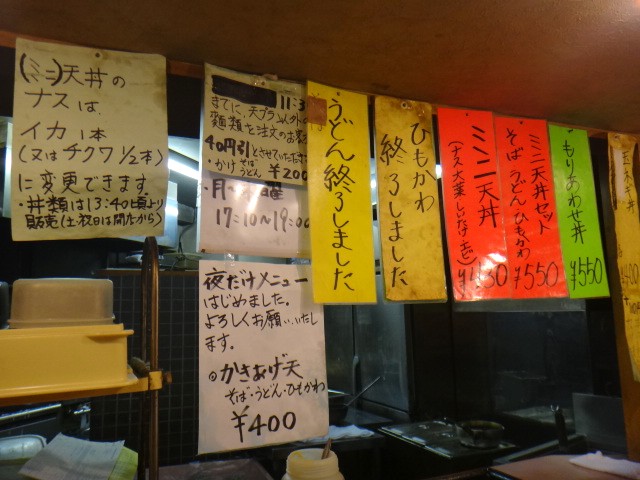 (ミニ)天丼の
ナスは、
イカ1本
(又はチクワ1/2本)
に変更できます。
・丼類は13:40頃より
販売(土・祝日は開店から)
11:3
までに、天プラ以外の
麺類を注文のお客
40円引とさせていただ
・かけ そば うどん ¥200
月〜 曜
17:10〜19:00
夜だけメニュー
はじめました。
よろしくお願いいたし
ます。
かきあげ天
そば・うどん・ひもかわ
¥400
うどん終了しました
ひもかわ
終了しました
ミニ天丼
¥430
ミニ天丼セット
そば うどん ひもかわ
¥550
もりあわせ丼
¥550